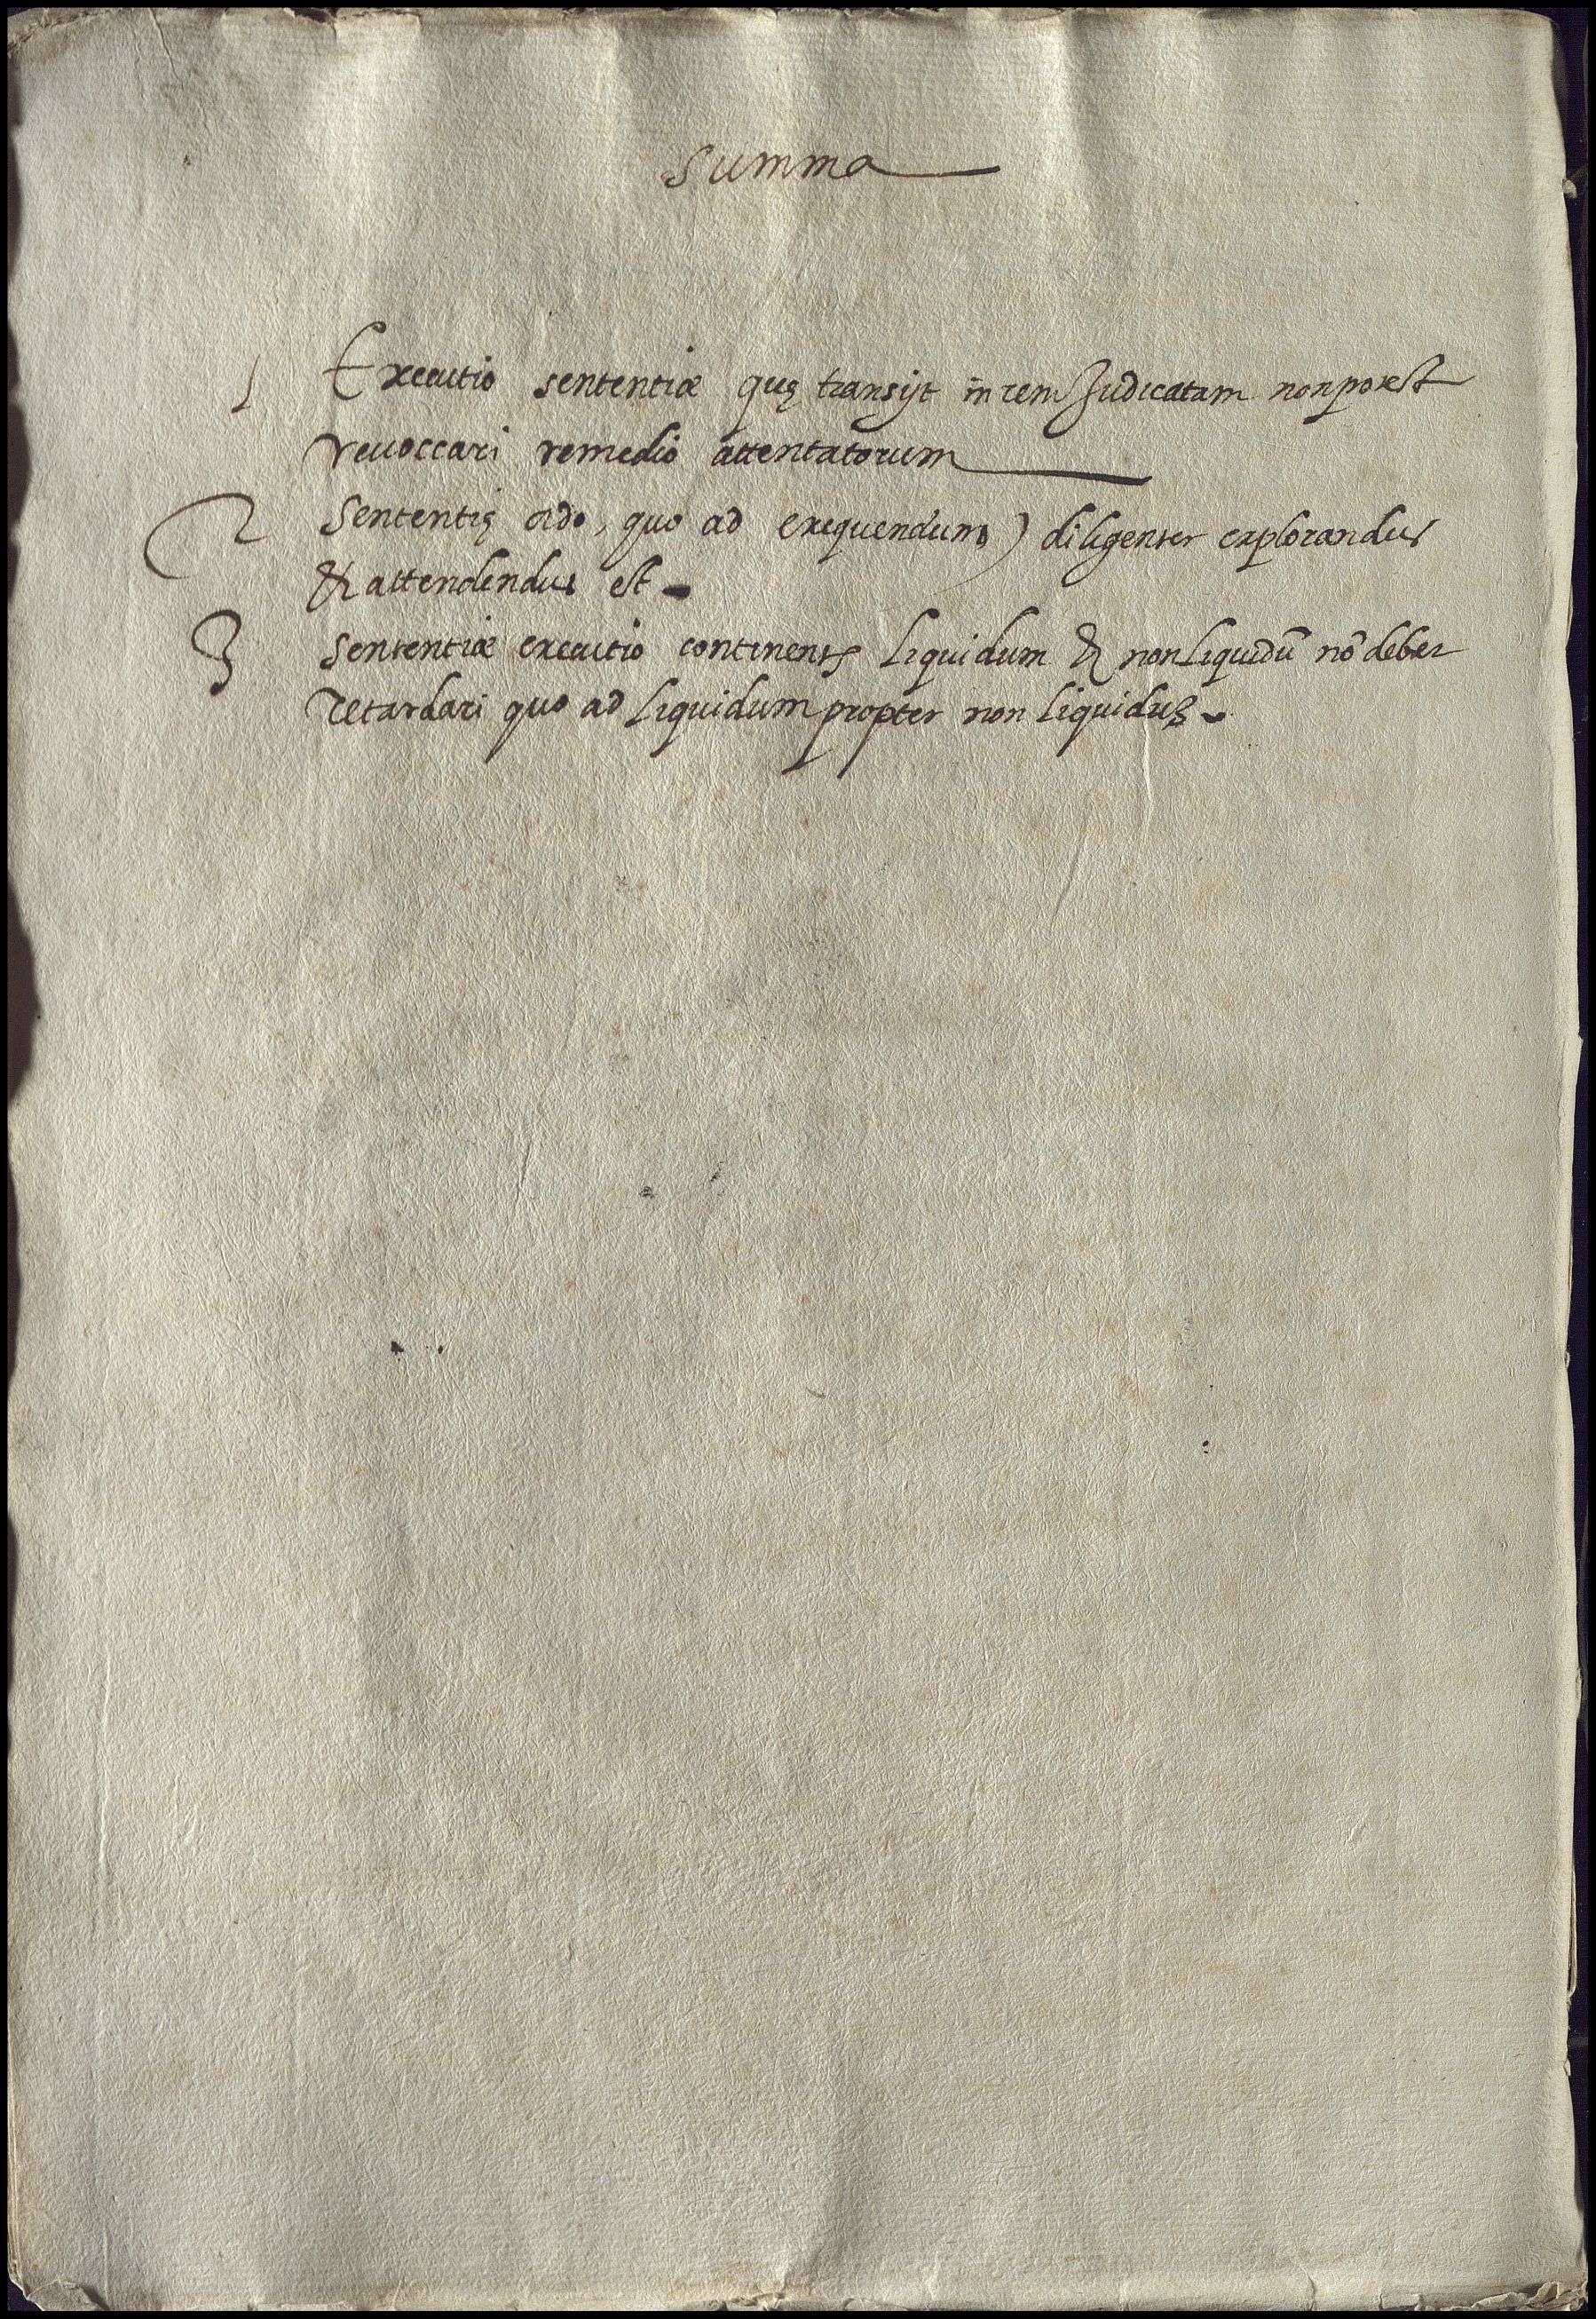 Summa
1 Executio sententiæ quę transijt in rem Judicatam non potest
reuoccari remedio attentatorum
2 Sententię ordo, quo ad exequendum) diligenter explorandus
& attendendus est
3 Sententiæ executio continentis liquidum & non liquidū nō debet
retardari quo ad liquidum propter non liquidum